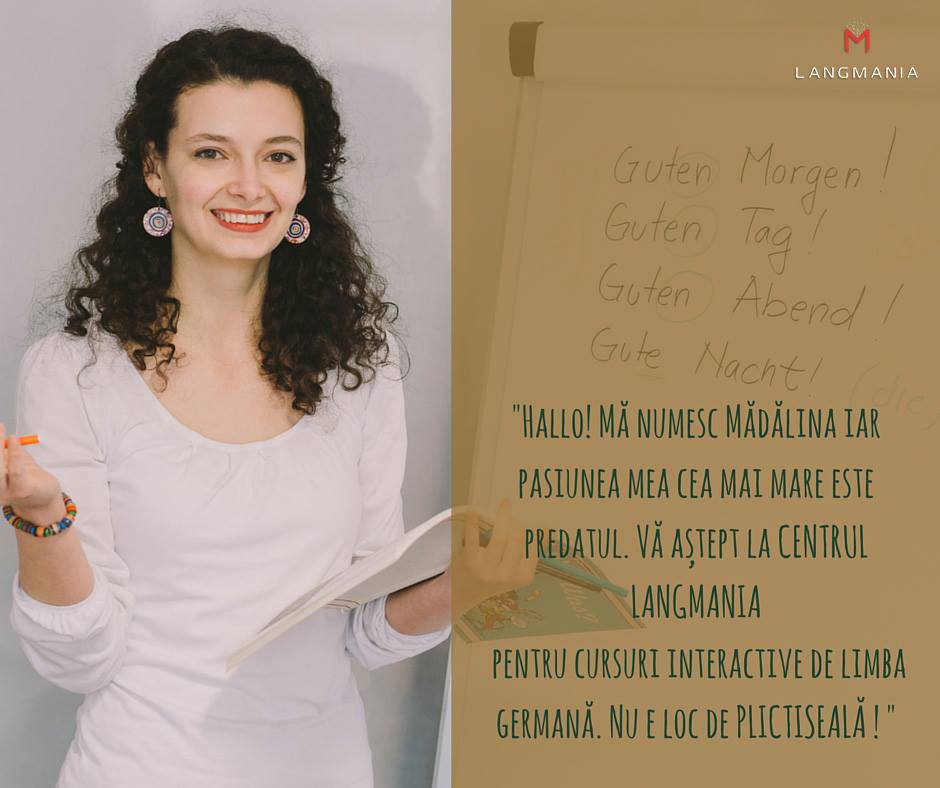 M
LANGMANIA
Guten Morgen!
Guten Tag!
Guten Abend!
Gute Nacht!
(die
"HALLO! MĂ NUMESC MĂDĂLINA IAR
PASIUNEA MEA CEA MAI MARE ESTE
PREDATUL. VĂ AȘTEPT LA CENTRUL
LANGMANIA
PENTRU CURSURI INTERACTIVE DE LIMBA
GERMANĂ. NU E LOC DE PLICTISEALĂ ! "